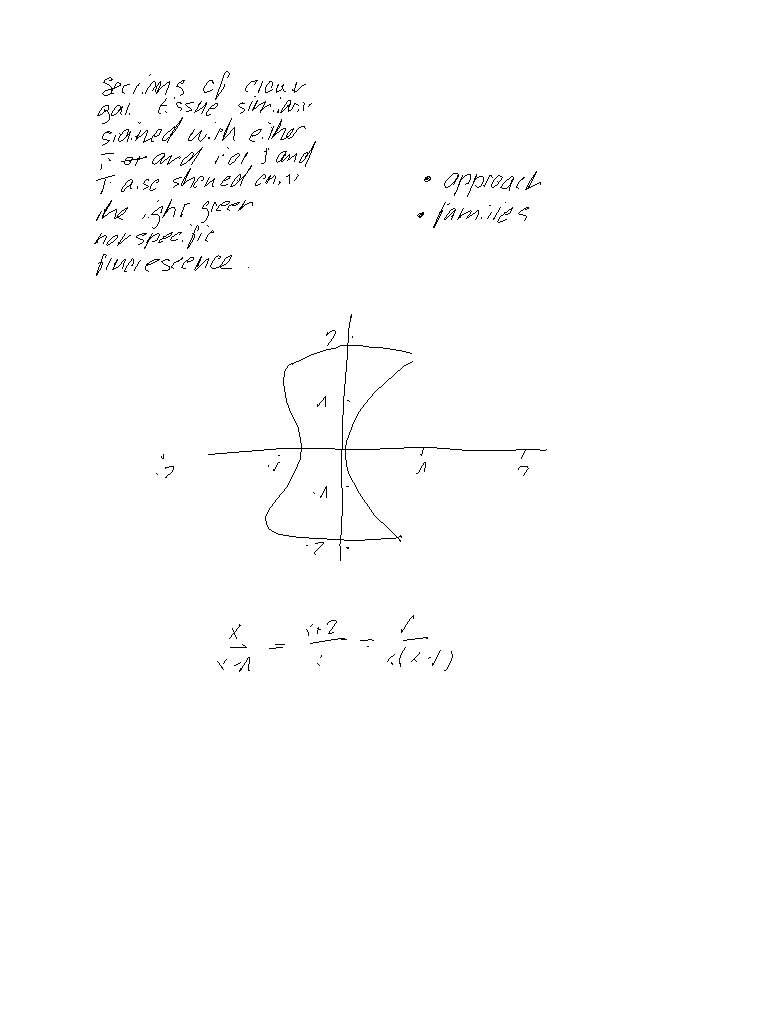 Sections of clover
gall tissue similarly
stained with either
and 1 or 3 and
T also showed only
the light green
nonspecific
fluorescence.
• approach
• families
2
1
-2 -1 1 2
-1
-2
x/(x-1) = (x+2)/x ÷ 1/(x(x-1))